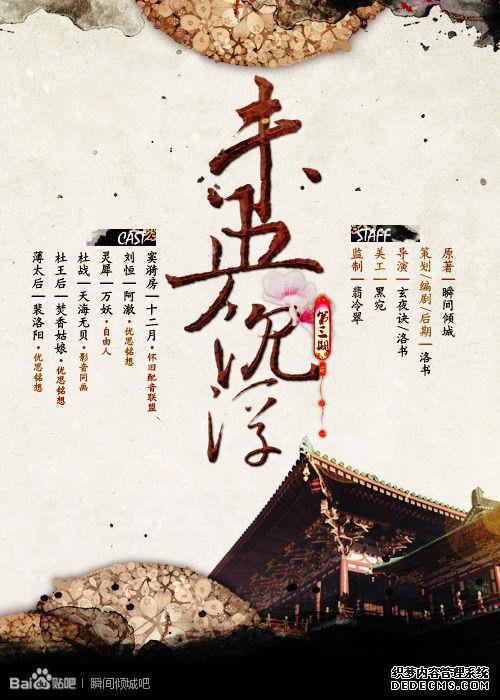 未央沉浮
第三期
STAFF
原著|瞬间倾城
策划/编剧/后期|洛书
导演|玄夜诀/洛书
美工|黑宛
监制|翡冷翠
CAST
窦漪房|十二月·怀旧配音联盟
刘恒|阿澈·优思铭想
灵犀|万妖·自由人
杜战|天海无贝·影音同画
杜王后|焚香姑娘·优思铭想
薄太后|裴洛阳·优思铭想
Bai贴吧|瞬间倾城吧
织梦内容管理系统
DEDECMS.COM